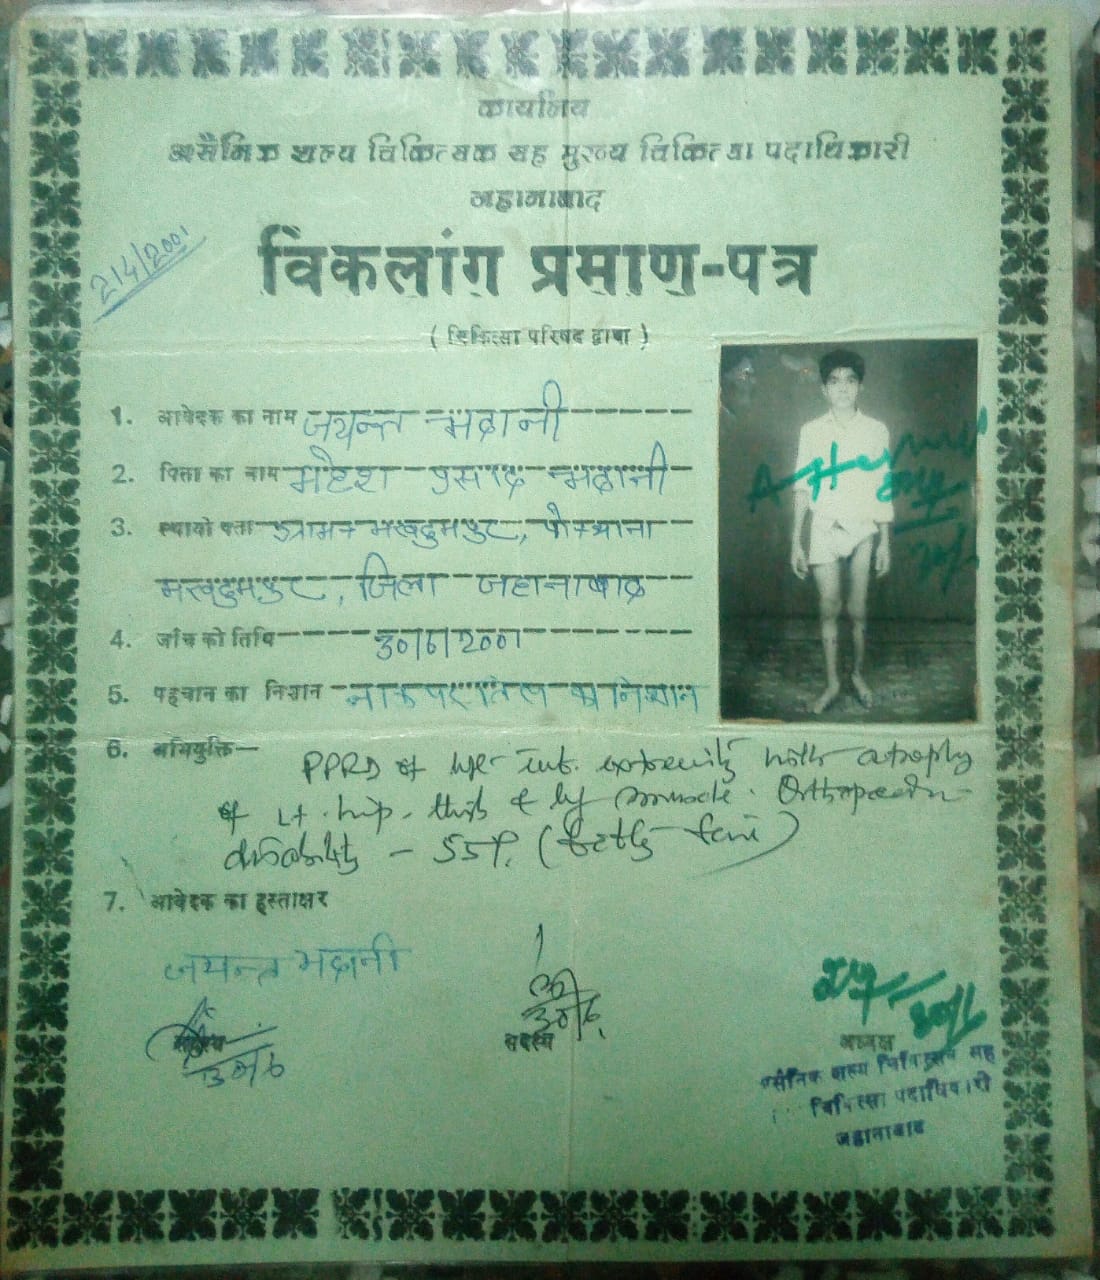 कार्यालय
असैनिक शल्य चिकित्सक सह मुख्य चिकित्सा पदाधिकारी
जहानाबाद
214/2001
विकलांग प्रमाण-पत्र
( चिकित्सा परिषद द्वारा )
1. आवेदक का नाम जयन्त भदानी
2. पिता का नाम महेश प्रसाद भदानी
3. स्थायी पता ग्राम+मखदुमपुर, पो+थाना
मखदुमपुर, जिला जहानाबाद
4. जाँच की तिथि 30/6/2001
5. पहचान का निशान नाक पर तिल का निशान
6. अभियुक्ति— PPRD of extremity with atrophy
of Lt. hip - & muscle. Orthopaedic
disability - 55%.
7. आवेदक का हस्ताक्षर
जयन्त भदानी
30/6
सदस्य
30/6
सदस्य
30/6
अध्यक्ष
असैनिक शल्य चिकित्सक सह
चिकित्सा पदाधिकारी
जहानाबाद